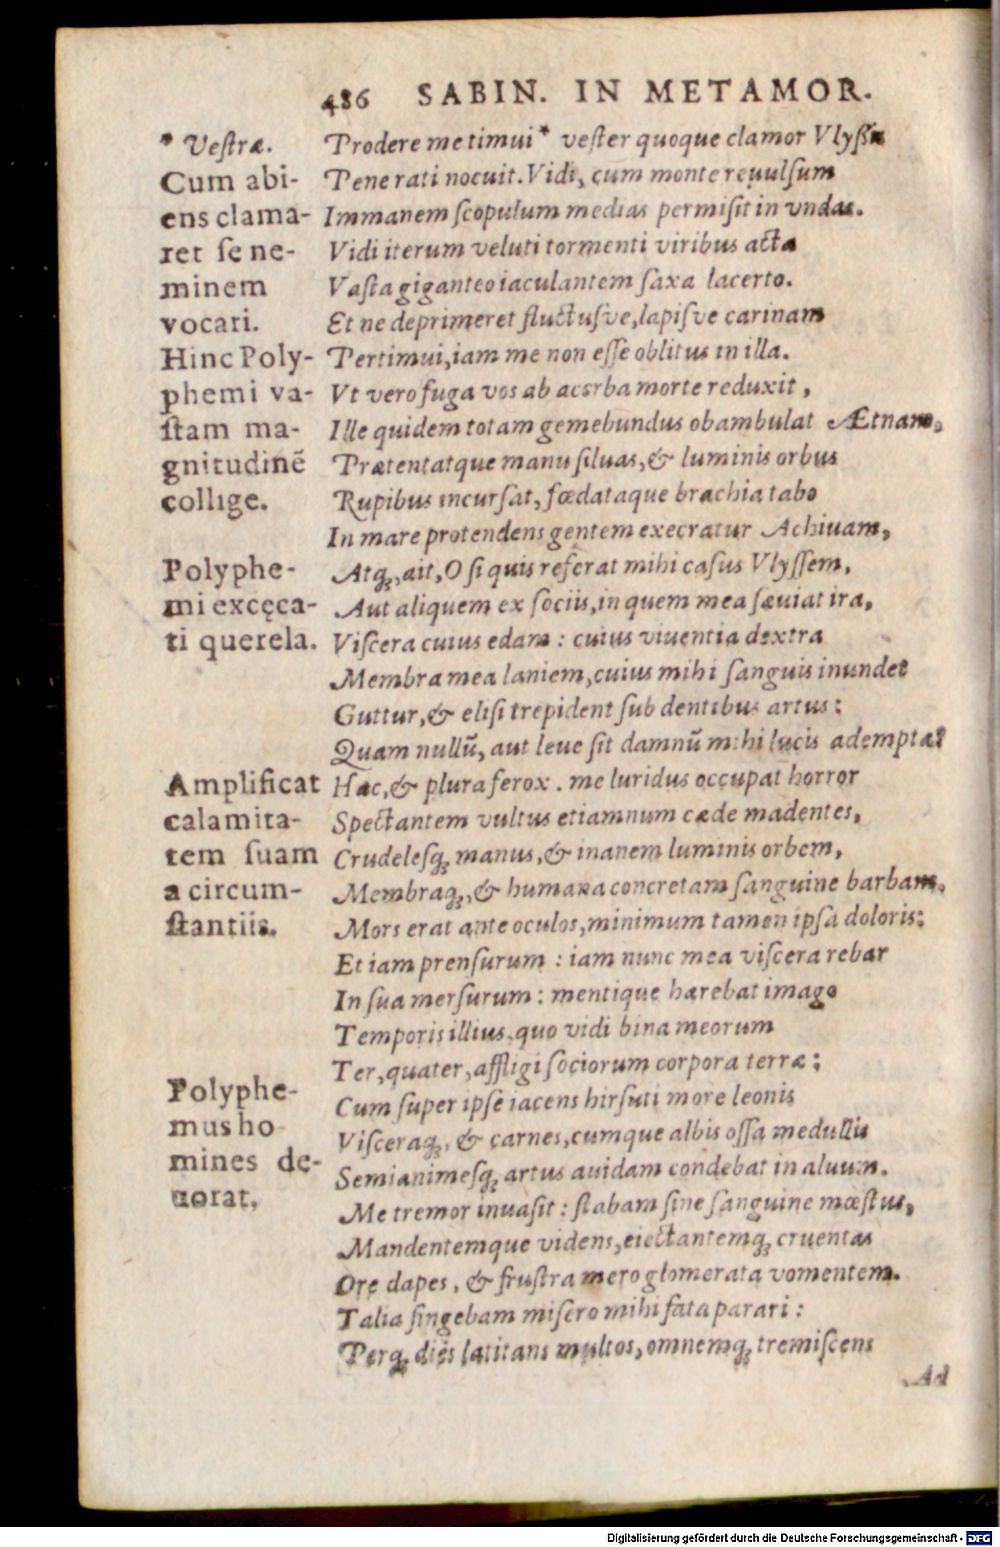 486 SABIN. IN METAMOR.
* Vestræ.
Cum abi-
ens clama-
ret se ne-
minem
vocari.
Hinc Poly-
phemi va-
stam ma-
gnitudinẽ
collige.
Polyphe-
mi excęca-
ti querela.
Amplificat
calamita-
tem suam
a circum-
stantiis.
Polyphe-
mus ho
mines de-
uorat.
Prodere me timui* vester quoque clamor Vlyssis
Pene rati nocuit. Vidi, cum monte reuulsum
Immanem scopulum medias permisit in vndas.
Vidi iterum veluti tormenti viribus acta
Vasta giganteo iaculantem saxa lacerto.
Et ne deprimeret fluctusve, lapisve carinam
Pertimui, iam me non esse oblitus in illa.
Vt vero fuga vos ab acerba morte reduxit,
Ille quidem totam gemebundus obambulat Ætnam,
Prætentatque manu siluas, & luminis orbus
Rupibus incursat, fœdataque brachia tabo
In mare protendens gentem execratur Achiuam,
Atq;, ait, O si quis referat mihi casus Vlyssem,
Aut aliquem ex sociis, in quem mea sæuiat ira,
Viscera cuius edam: cuius viuentia dextra
Membra mea laniem, cuius mihi sanguis inundet
Guttur, & elisi trepident sub dentibus artus:
Quam nullũ, aut leue sit damnũ mihi lucis ademptæ?
Hæc, & plura ferox. me luridus occupat horror
Spectantem vultus etiamnum cæde madentes,
Crudelesq; manus, & inanem luminis orbem,
Membraq;, & humana concretam sanguine barbam.
Mors erat ante oculos, minimum tamen ipsa doloris:
Et iam prensurum: iam nunc mea viscera rebar
In sua mersurum: mentique hærebat imago
Temporis illius, quo vidi bina meorum
Ter, quater, affligi sociorum corpora terræ:
Cum super ipse iacens hirsuti more leonis
Visceraq;, & carnes, cumque albis ossa medullis
Semianimesq; artus auidam condebat in aluum.
Me tremor inuasit: stabam sine sanguine mœstus,
Mandentemque videns, eiectantemq; cruentas
Ore dapes, & frustra mero glomerata vomentem.
Talia fingebam misero mihi fata parari:
Perq; dies latitans multos, omnemq; tremiscens
Ad
Digitalisierung gefördert durch die Deutsche Forschungsgemeinschaft - DFG